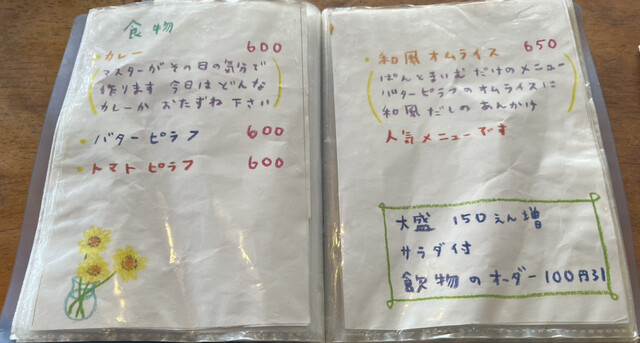 食物
カレー 600
マスターがその日の気分で
作ります 今日はどんな
カレーか おたずね下さい
バターピラフ 600
トマトピラフ 600
和風オムライス 650
ぱんとまいむだけのメニュー
バターピラフのオムライスに
和風だしのあんかけ
人気メニューです
大盛 150えん増
サラダ付
飲物のオーダー100円引